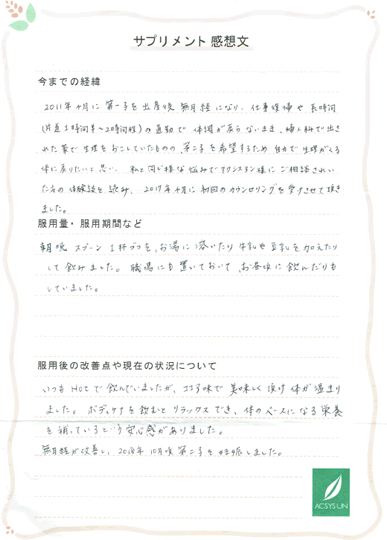 サプリメント 感想文
今までの経緯
2011年4月に第一子を出産後 無月経になり、仕事復帰や長時間
(片道1時間半〜2時間程)の通勤で 体調が戻らないまま、婦人科で出さ
れた薬で生理をおこしていたものの、第二子を希望するため自力で生理がくる
体に戻りたいと思い、私と同じ様な悩みでアクシスアン様にご相談されてい
た方の体験談を読み、2017年4月に初回のカウンセリングを受けさせて頂き
ました。
服用量・服用期間など
朝晩 スプーン1杯づつを、お湯に溶いたり 牛乳や豆乳を加えたり
して飲みました。職場にも置いておいて、お昼後に飲んだりも
していました。
服用後の改善点や現在の状況について
いつもHotで飲んでいましたが、ココア味で美味しく頂け体が温まり
ました。ボディケアを飲むとリラックスでき、体のベースになる栄養
を補っているという安心感がありました。
無月経が改善し、2018年10月頃第二子を妊娠しました。
ACSYSUN